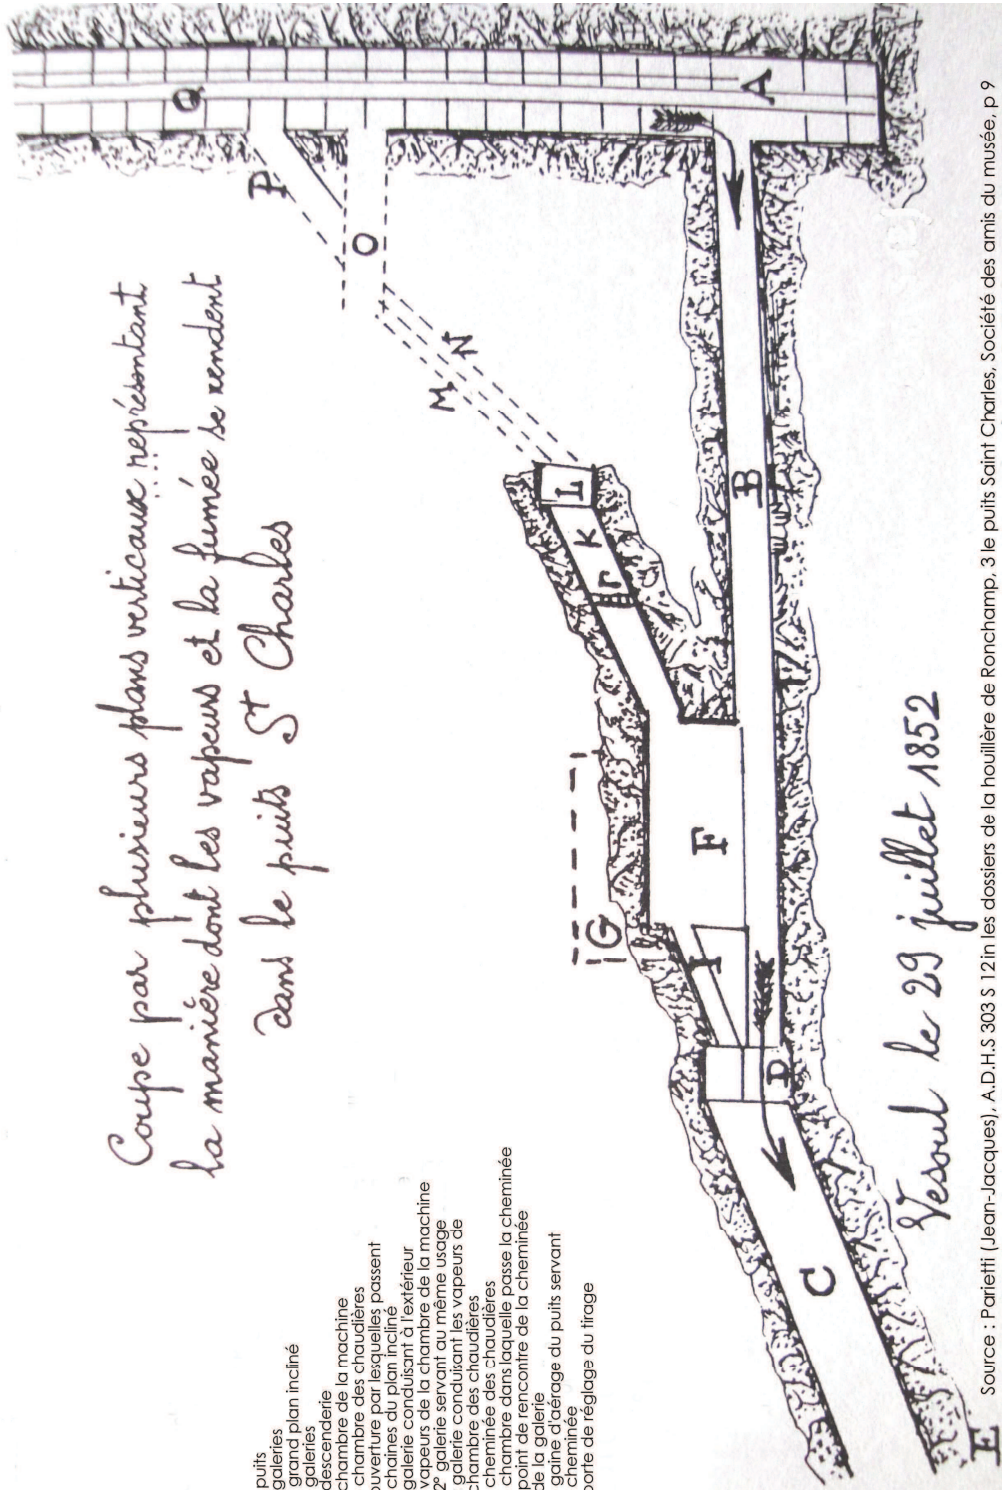 Coupe par plusieurs plans verticaux représentant
la manière dont les vapeurs et la fumée se rendent
dans le puits St Charles
Q
A
P
O
M
N
L
K
r
B
G
F
I
D
C
E
puits
galeries
grand plan incliné
galeries
descenderie
chambre de la machine
chambre des chaudières
ouverture par lesquelles passent
chaines du plan incliné
galerie conduisant à l'extérieur
vapeurs de la chambre de la machine
2° galerie servant au même usage
galerie conduisant les vapeurs de
chambre des chaudières
cheminée des chaudières
chambre dans laquelle passe la cheminée
point de rencontre de la cheminée
de la galerie
gaine d'aérage du puits servant
cheminée
porte de réglage du tirage
Vesoul le 29 juillet 1852
Source : Parietti (Jean-Jacques), A.D.H.S 303 S 12 in les dossiers de la houillère de Ronchamp, 3 le puits Saint Charles, Société des amis du musée, p 9